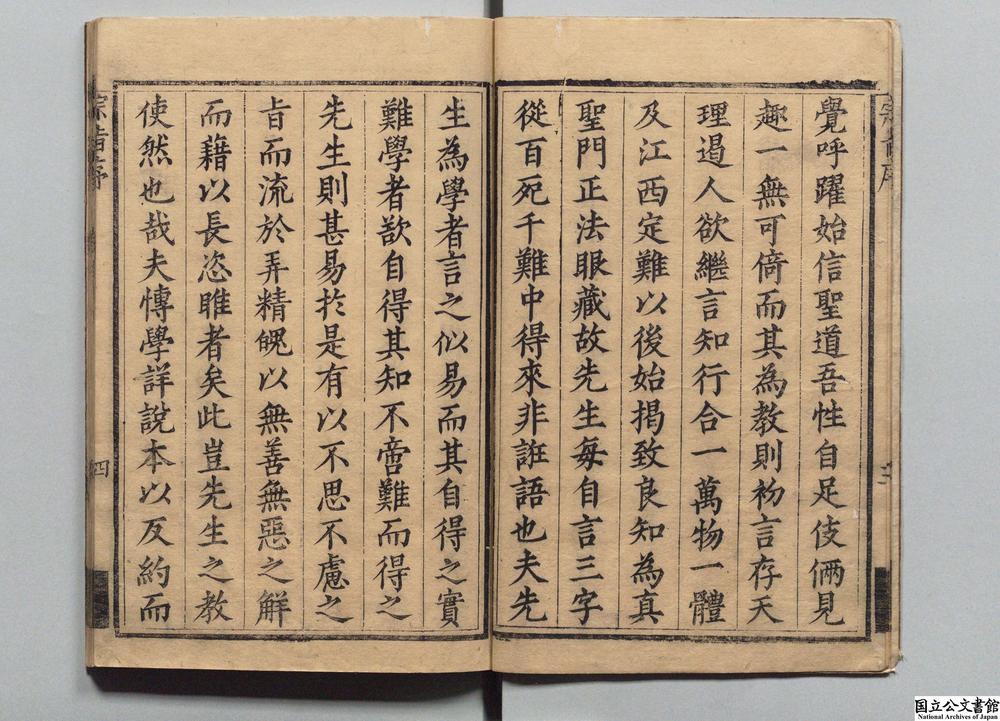 覺呼躍始信聖道吾性自足伎倆見
趣一無可倚而其為教則初言存天
理遏人欲繼言知行合一萬物一體
及江西定難以後始揭致良知為真
聖門正法眼藏故先生每自言三字
從百死千難中得來非誑語也夫先
生為學者言之似易而其自得之實
難學者欲自得其知不啻難而得之
先生則甚易於是有以不思不慮之
旨而流於弄精魄以無善無惡之解
而藉以長恣睢者矣此豈先生之教
使然也哉夫愽學詳說本以反約而
宗旨序
四
国立公文書館
National Archives of Japan